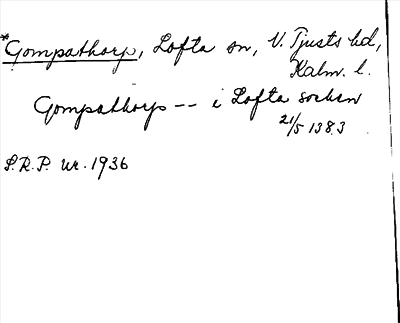 *Gompathorp, Lofta sn, V. Tjusts hd,
Kalm. l.
Gompathorps -- i Lofta socken
21/5 1383
S.R.P. nr. 1936